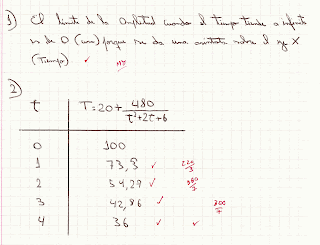 1) El límite de la amplitud cuando el tiempo tiende a infinito
es de 0 (cero) porque nos da una asíntota sobre el eje X
(Tiempo) ✓
2)
t T = 20 + 480 / t²+2t+6
0 100
1 73,3 ✓ 220/3
2 54,29 ✓ 380/7
3 42,86 ✓ 300/7
4 36 ✓ ✓